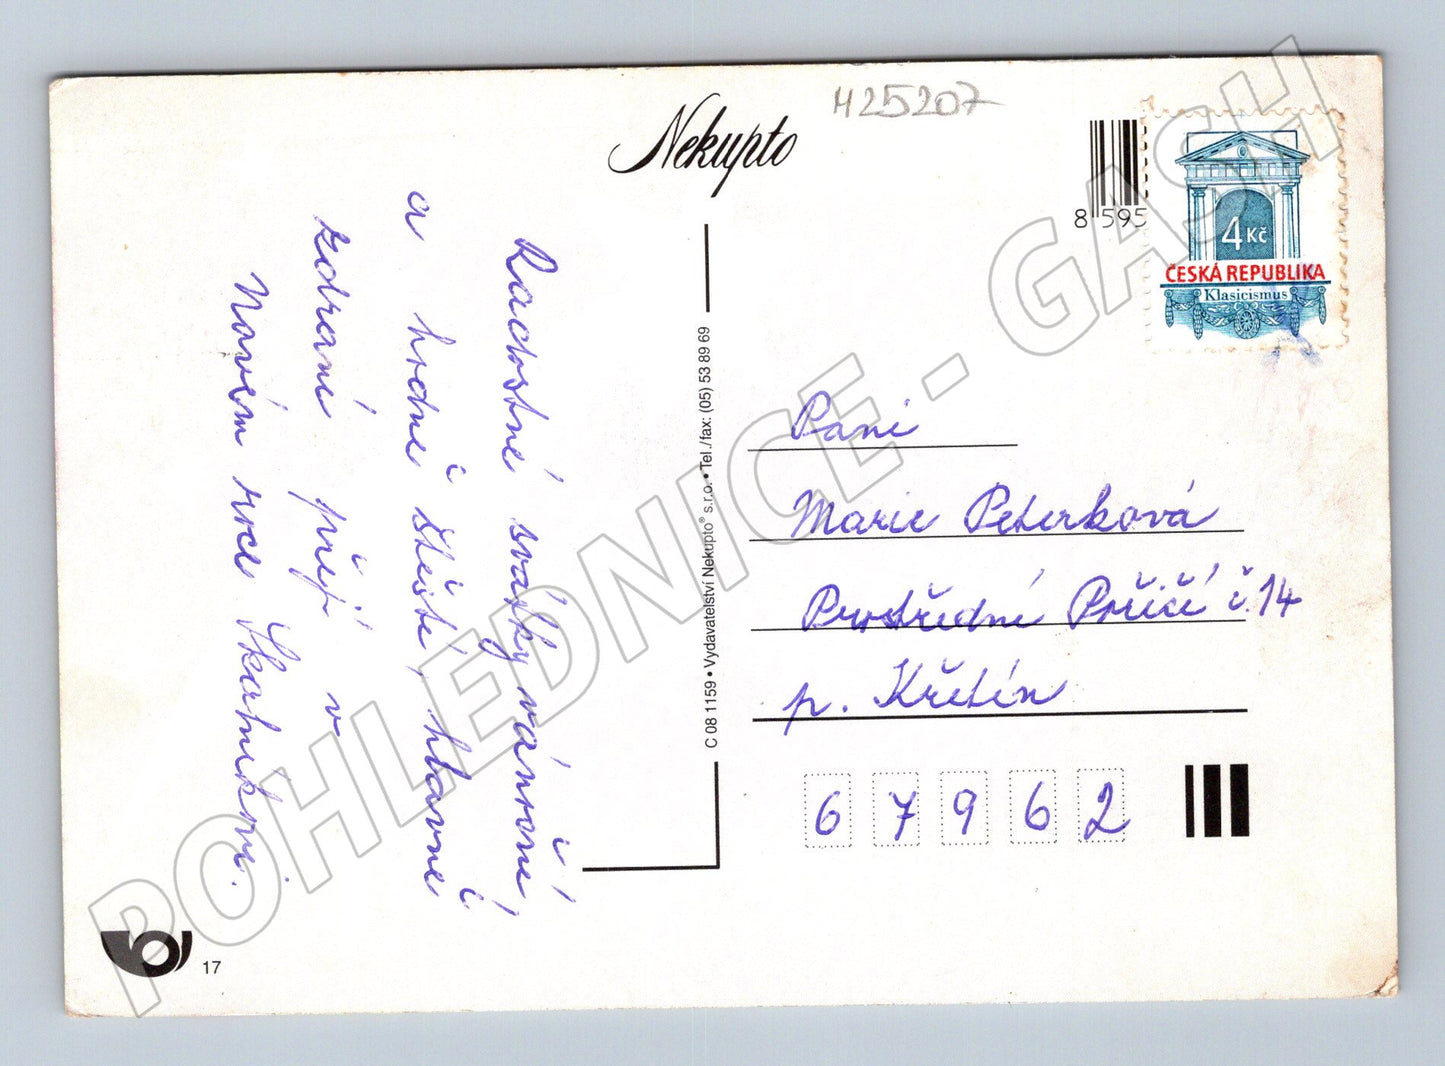 Nekupto
H25207
8 595
4 Kč
ČESKÁ REPUBLIKA
Klasicismus
Radostné svátky vánoční,
a hodně štěstí, hlavně
zdraví přejí v
Novém roce Skalníkovi.
C 08 1159 • Vydavatelství Nekupto® s.r.o. • Tel./fax: (05) 53 89 69
Paní
Marie Peterková
Prostřední Poříčí č. 14
p. Křetín
67962
17
POHLEDNICE - GASH